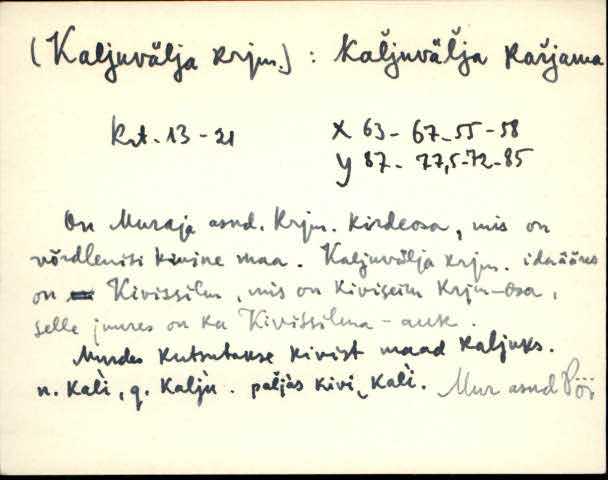 (Kaljuvälja krjm.) : kaľjuväľja kařjama
krt. 13 - 21 X 63 - 67 - 55 - 58
Y 87 - 77,5-72 - 85
On Muraja asnd. krjm. kirdeosa, mis on
võrdlemisi kivine maa. Kaljuvälja krjm. idaääres
on Kivissilm, mis on kiviseim krjm-osa,
selle juures on ka Kivissilma - auk.
Murdes kutsutakse kivist maad kaljuks.
n. kaĺi, g. kalju. paljas kivi, kaĺi. Mur asnd Pöi